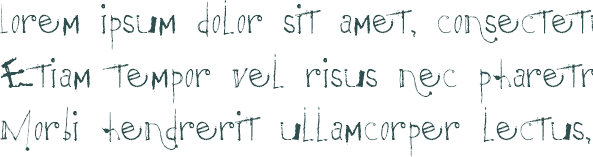 Lorem ipsum dolor sit amet, consectetu
Etiam tempor vel risus nec pharetr
Morbi hendrerit ullamcorper lectus,